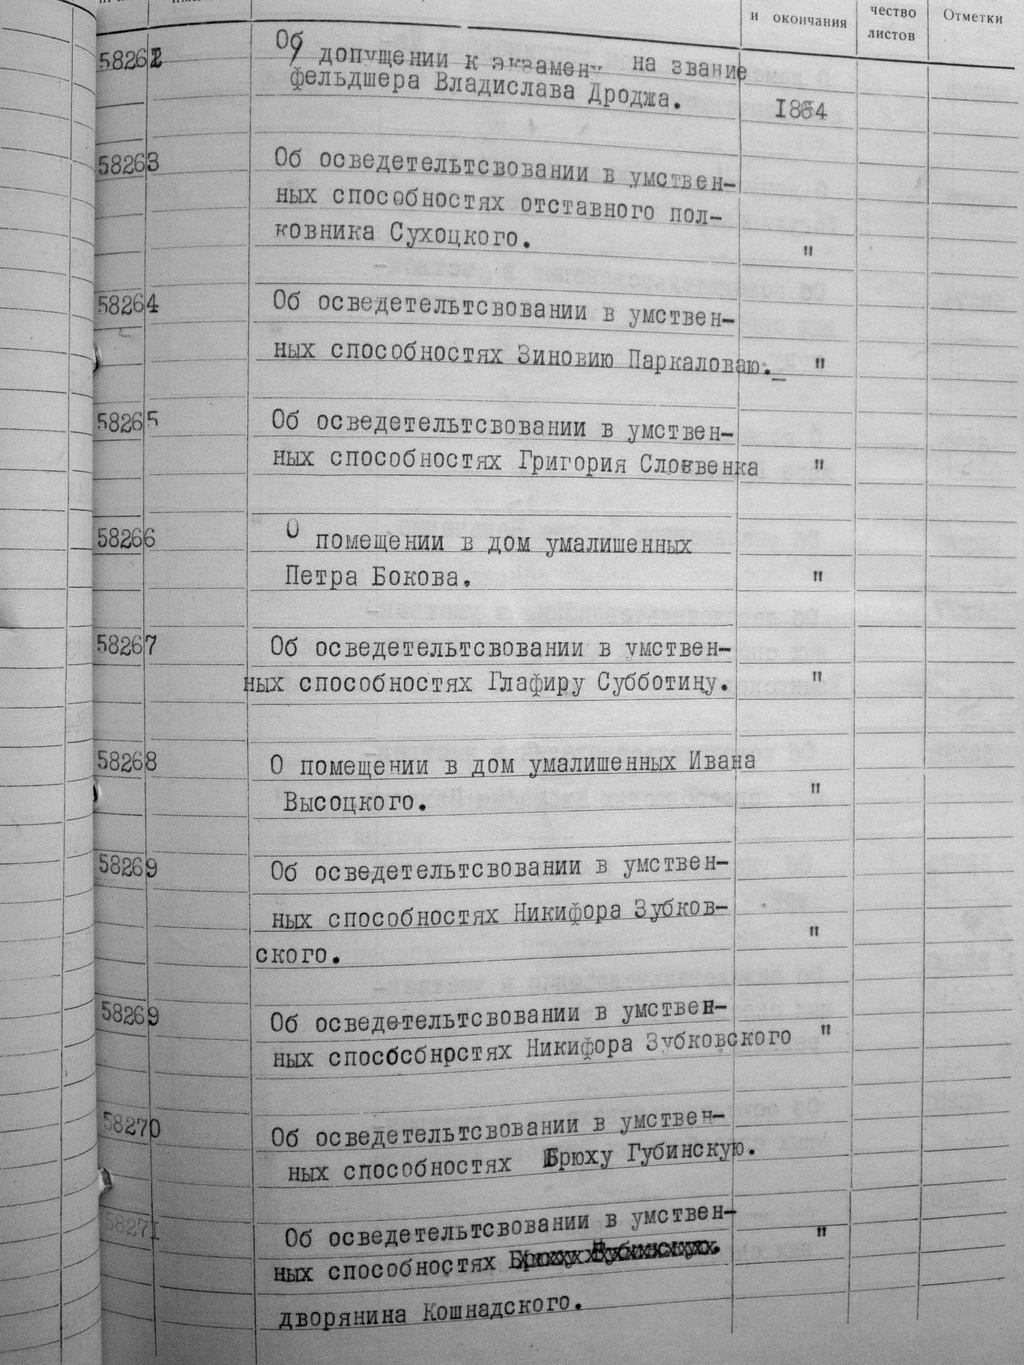 и окончания
чество
листов
Отметки
58262
Об допущении к экзамену на звание
фельдшера Владислава Дроджа.
1864
58263
Об осведетельтсвовании в умствен-
ных способностях отставного пол-
ковника Сухоцкого.
"
58264
Об осведетельтсвовании в умствен-
ных способностях Зиновию Паркаловаю. "
58265
Об осведетельтсвовании в умствен-
ных способностях Григория Словвенка "
58266
О помещении в дом умалишенных
Петра Бокова. "
58267
Об осведетельтсвовании в умствен-
ных способностях Глафиру Субботину. "
58268
О помещении в дом умалишенных Ивана
Высоцкого. "
58269
Об осведетельтсвовании в умствен-
ных способностях Никифора Зубков-
ского. "
58269
Об осведетельтсвовании в умствен-
ных способностях Никифора Зубковского "
58270
Об осведетельтсвовании в умствен-
ных способностях Брюху Губинскую.
58271
Об осведетельтсвовании в умствен- "
ных способностях Брюху Губинскую.
дворянина Кошнадского.